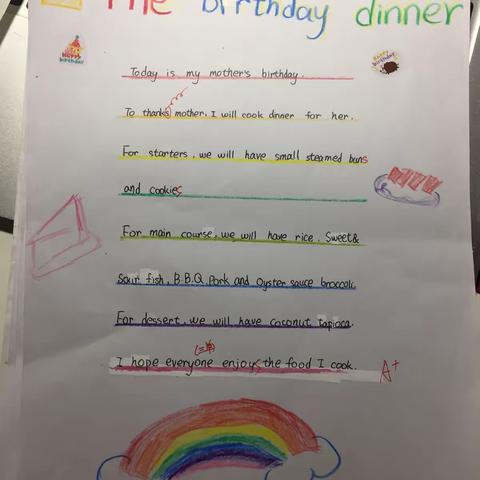 The birthday dinner
Happy birthday
Happy birthday
Today is my mother's birthday.
To thanks mother, I will cook dinner for her.
For starters, we will have small steamed buns
and cookies
For main course, we will have rice. Sweet&
Sour fish, B.B.Q. Pork and Oyster sauce broccoli.
For dessert, we will have coconut tapioca.
I hope everyone enjoys the food I cook.
A+